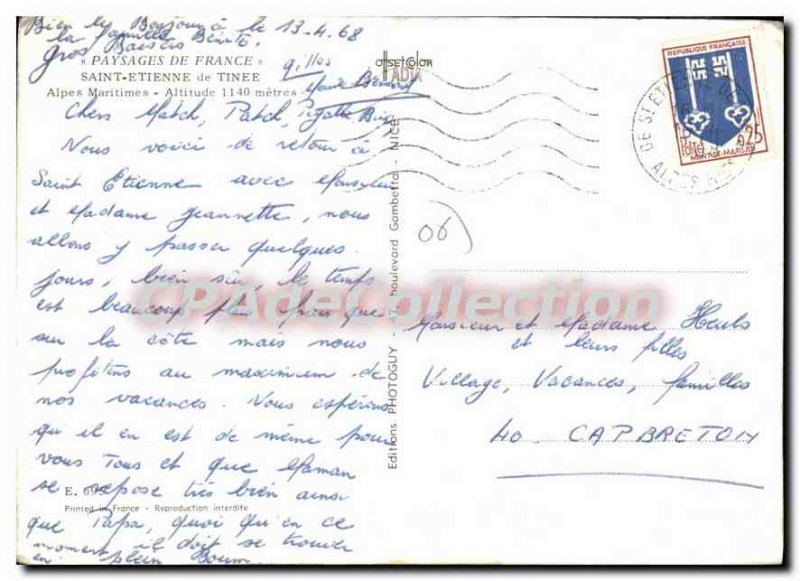 Bien le Bonjour à le 13-4.68
la famille Bénito,
gros Baisers
gilles
« PAYSAGES DE FRANCE »
SAINT-ETIENNE de TINEE
Alpes Maritimes - Altitude 1140 mètres
offsetcolor
IADIA
Chers Match, Patch,
Nous voici de retour à
Saint Etienne avec Monsieur
et Madame Jeannette, nous
allons y passer quelques
jours, bien sûr, le temps
est beaucoup plus
sur la côte mais nous
profitons au maximum de
nos vacances. Nous espérons
qu'il en est de même pour
vous Tous et que Maman
se repose très bien ainsi
que Papa, quoi qu'en ce
moment il doit se trouver
en plein Boum.
E. 695
Printed in France - Reproduction interdite
Editions PHOTOGUY - 47, boulevard Gambetta - NICE
REPUBLIQUE FRANÇAISE
POSTES 0,25
MONT-DE-MARSAN
06 ST ETIENNE DE
ALPES
06)
CPAdeCollection.com
Monsieur et Madame
et leurs filles
Village, Vacances, familles
40. CAPBRETON